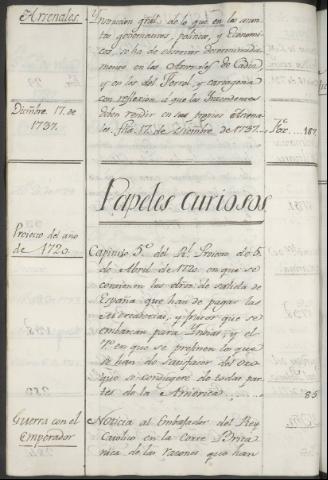 Arsenales.
Ynstruccion gral. de lo que en los asun-
tos governativos, politicos, y Economi-
cos, se ha de observar
mente en los Arsenales de Cadiz,
y en los del Ferrol y cartagena
con reflexion a que los Yntendentes
deben residir en sus propios Arsena-
les. fha. 17. de Diciembre de 1737... Foxa... 187.
Diciembre. 17. de
1737.
Papeles curiosos
Proiecto del año
de 1720.
Capitulo 5.º del Rl. Proiecto de 5.
de Abril de 1720. en que se
contienen los dros. de salida de
España que han de pagar las
Mercadurias, y frutos que se
embarcan para Yndias, y el
7.º en que se previenen los que
se han de satisfacer del Oro
que se condugere de todas par-
tes de la America ... 85
Guerra con el
Emperador
Noticia al Embajador del Rey
Catolico en la Corte Brita-
nica de las razones que han